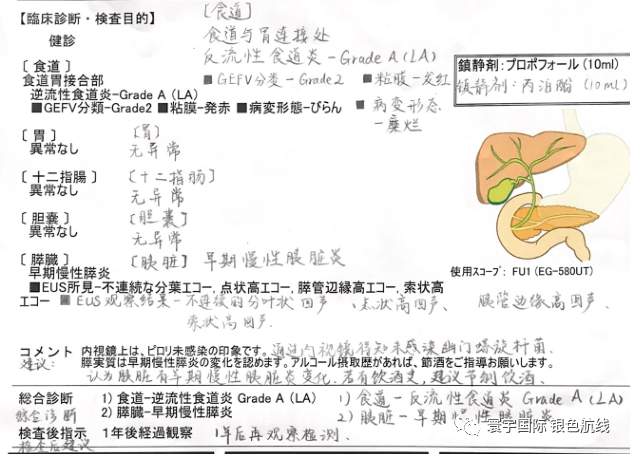 【臨床診断・検査目的】
健診
[食道]
食道与胃连接处
反流性食道炎-Grade A (LA)
■GEFV分类-Grade2 ■粘膜-发红
■病变形态
-糜烂
[食道]
食道胃接合部
逆流性食道炎-Grade A (LA)
■GEFV分類-Grade2 ■粘膜-発赤 ■病変形態-びらん
鎮静剤:プロポフォール (10ml)
镇静剂:丙泊酚 (10ml)
[胃] [胃]
異常なし 无异常
[十二指腸] [十二指肠]
異常なし 无异常
[胆嚢] [胆囊]
異常なし 无异常
[膵臓] [胰脏] 早期慢性胰脏炎
早期慢性膵炎
■EUS所見-不連続な分葉エコー, 点状高エコー, 膵管辺縁高エコー, 索状高
エコー ■EUS观察结果-不连续的分叶状回声、点状高回声、胰管边缘高回声、
索状高回声.
使用スコープ: FU1 (EG-580UT)
コメント 内視鏡上は、ピロリ未感染の印象です。通过内视镜得知未感染幽门螺旋杆菌.
建议: 膵実質は早期膵炎の変化を認めます。アルコール摂取歴があれば、節酒をご指導お願いします。
认为胰脏有早期慢性胰脏炎变化.若有饮酒史,建议节制饮酒.
総合診断 1) 食道-逆流性食道炎 Grade A (LA) 1) 食道-反流性食道炎 Grade A (LA)
综合诊断 2) 膵臓-早期慢性膵炎 2) 胰脏-早期慢性胰脏炎
検査後指示 1年後経過観察 1年后再观察检测.
检查后建议
寰宇国际 银色航线